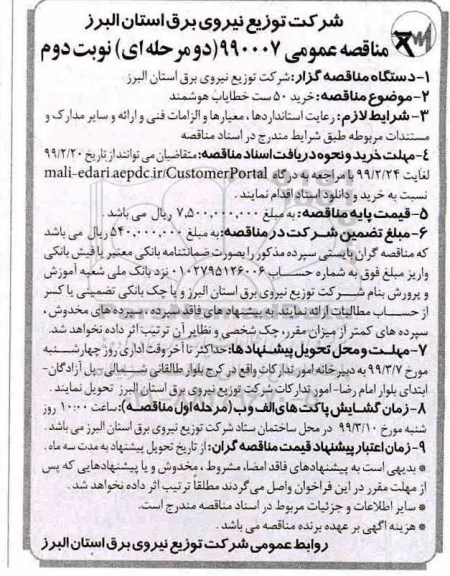 شرکت توزیع نیروی برق استان البرز
مناقصه عمومی ۹۹۰۰۰۷(دو مرحله ای) نوبت دوم
۱-دستگاه مناقصه گزار: شرکت توزیع نیروی برق استان البرز
۲-موضوع مناقصه: خرید ۵۰ ست خطایاب هوشمند
۳- شرایط لازم: رعایت استانداردها ، معیارها و الزامات فنی و ارائه و سایر مدارک و
مستندات مربوطه طبق شرایط مندرج در اسناد مناقصه
٤-مهلت خرید و نحوه دریافت اسناد مناقصه: متقاضیان می توانند از تاریخ ۹۹/۲/۲۰
لغایت ۹۹/۲/۲۴ با مراجعه به درگاه mali-edari.aepdc.ir/CustomerPortal
نسبت به خرید و دانلود اسناد اقدام نمایند .
۵-قیمت پایه مناقصه: به مبلغ ۷,۵۰۰,۰۰۰,۰۰۰ ریال می باشد .
۶-مبلغ تضمین شرکت در مناقصه: به مبلغ ۵۴۰,۰۰۰,۰۰۰ ریال می باشد
که مناقصه گران بایستی سپرده مذکور را بصورت ضمانتنامه بانکی معتبر یا فیش بانکی
واریز مبلغ فوق به شماره حساب ۰۱۰۲۷۹۵۱۲۶۰۰۶ نزد بانک ملی شعبه آموزش
و پرورش بنام شرکت توزیع نیروی برق استان البرز و یا چک بانکی تضمینی یا کسر
از حساب مطالبات ارائه نمایند. به پیشنهاد های فاقد سپرده ، سپرده های مخدوش ،
سپرده های کمتر از میزان مقرر، چک شخصی و نظایر آن ترتیب اثر داده نخواهد شد.
۷-مهلت و محل تحویل پیشنهادها: حداکثر تا آخر وقت اداری روز چهارشنبه
مورخ ۹۹/۳/۷ به دبیرخانه امور تدارکات واقع در کرج بلوار طالقانی شمالی- پل آزادگان-
ابتدای بلوار امام رضا- امور تدارکات شرکت توزیع نیروی برق استان البرز تحویل نمایند .
۸-زمان گشایش پاکت های الف و ب (مرحله اول مناقصه): ساعت ۱۰:۰۰ روز
شنبه مورخ ۹۹/۳/۱۰ در محل ساختمان ستاد شرکت توزیع نیروی برق استان البرز می باشد .
۹-زمان اعتبار پیشنهاد قیمت مناقصه گران: از تاریخ تحویل پیشنهاد به مدت سه ماه .
* بدیهی است به پیشنهادهای فاقد امضا، مشروط ، مخدوش و یا پیشنهادهایی که پس
از مهلت مقرر در این فراخوان واصل می گردند مطلقاً ترتیب اثر داده نخواهد شد .
* سایر اطلاعات و جزئیات مربوط در اسناد مناقصه مندرج است.
* هزینه آگهی بر عهده برنده مناقصه می باشد .
روابط عمومی شرکت توزیع نیروی برق استان البرز